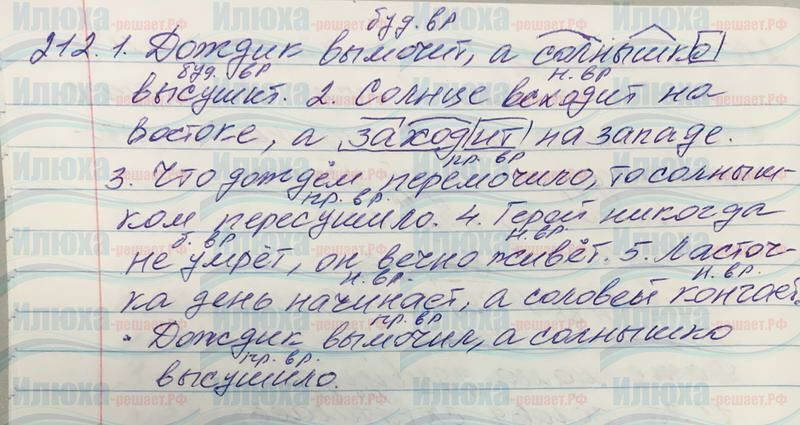 буд. вр
212. 1. Дождик вымочит, а солнышко
буд. вр н. вр
высушит. 2. Солнце всходит на
востоке, а заходит на западе.
пр. вр
3. Что дождём перемочило, то солныш-
пр. вр.
ком пересушило. 4. Герой никогда
б. вр н. вр.
не умрёт, он вечно живёт. 5. Ласточ-
н. вр. н. вр.
ка день начинает, а соловей кончает.
пр. вр
• Дождик вымочил, а солнышко
пр. вр.
высушило.
Илюха
-решает.РФ